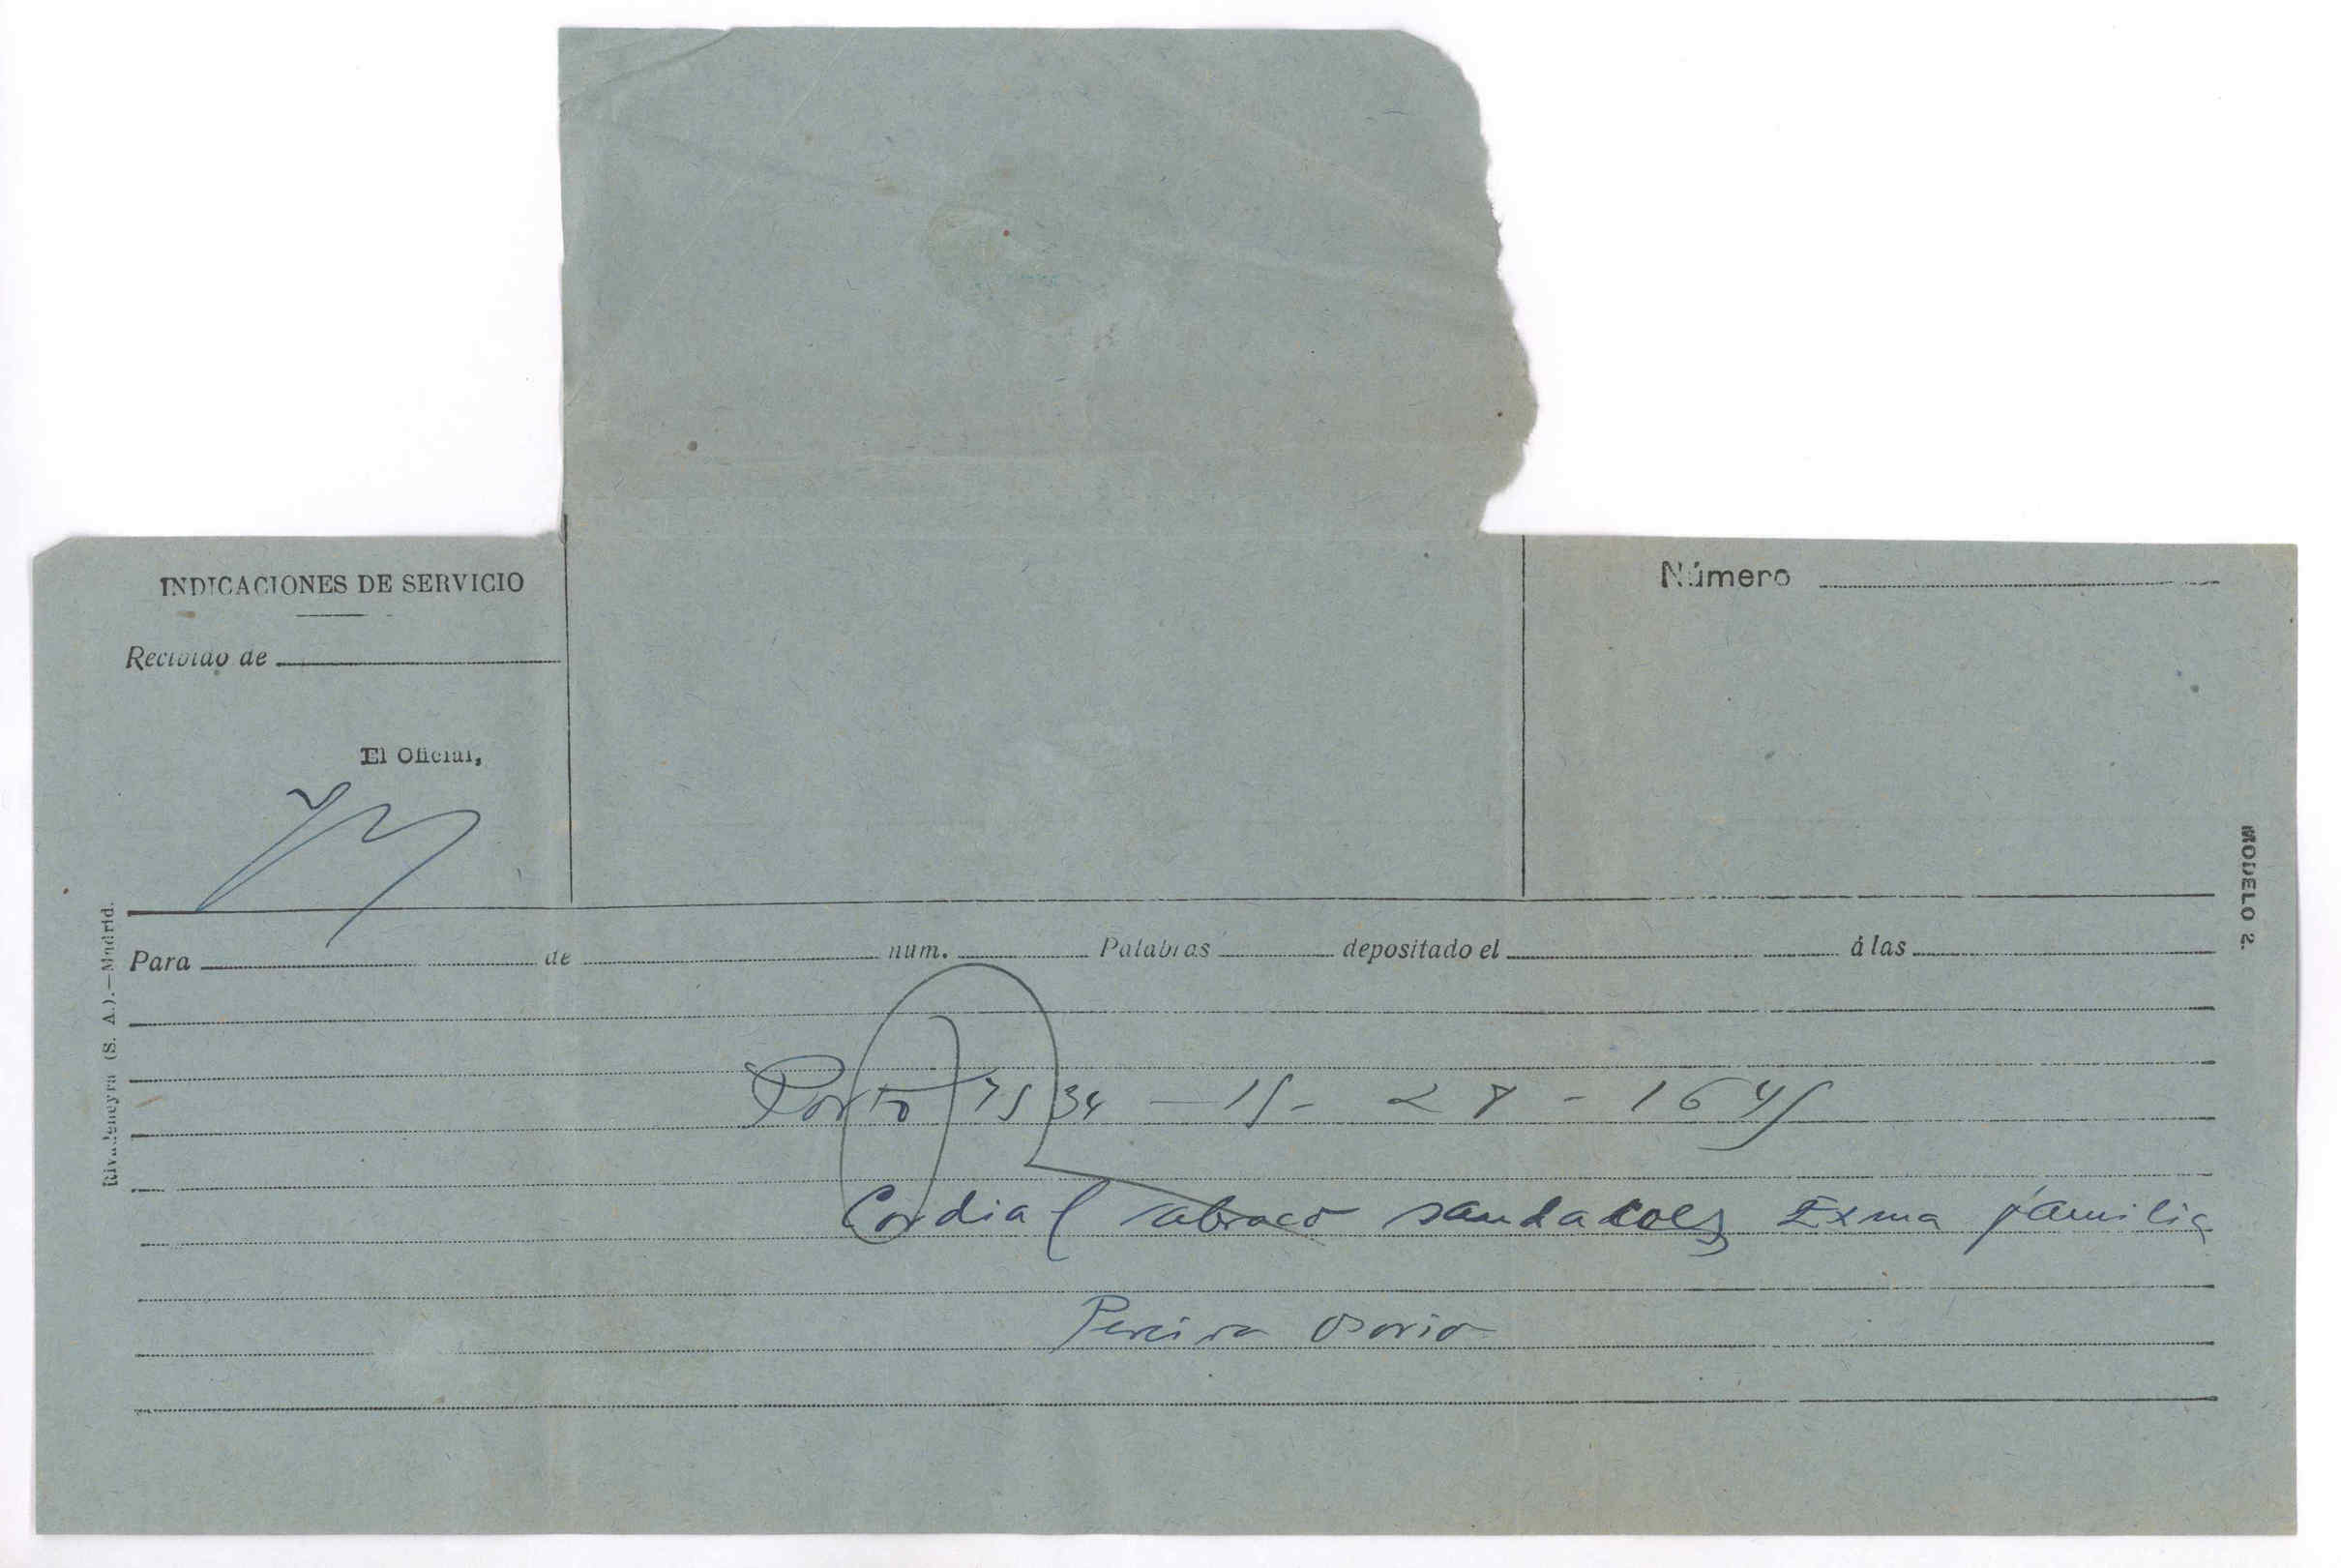 INDICACIONES DE SERVICIO
Número
Recibido de
El Oficial,
MODELO 2.
Rivadeneyra (S. A.).—Madrid.
Para de num. Palabras depositado el á las
Porto 7534 — 15 - 28 - 1645
Cordial abraco saudacoes Exma familia
Pereira Osorio